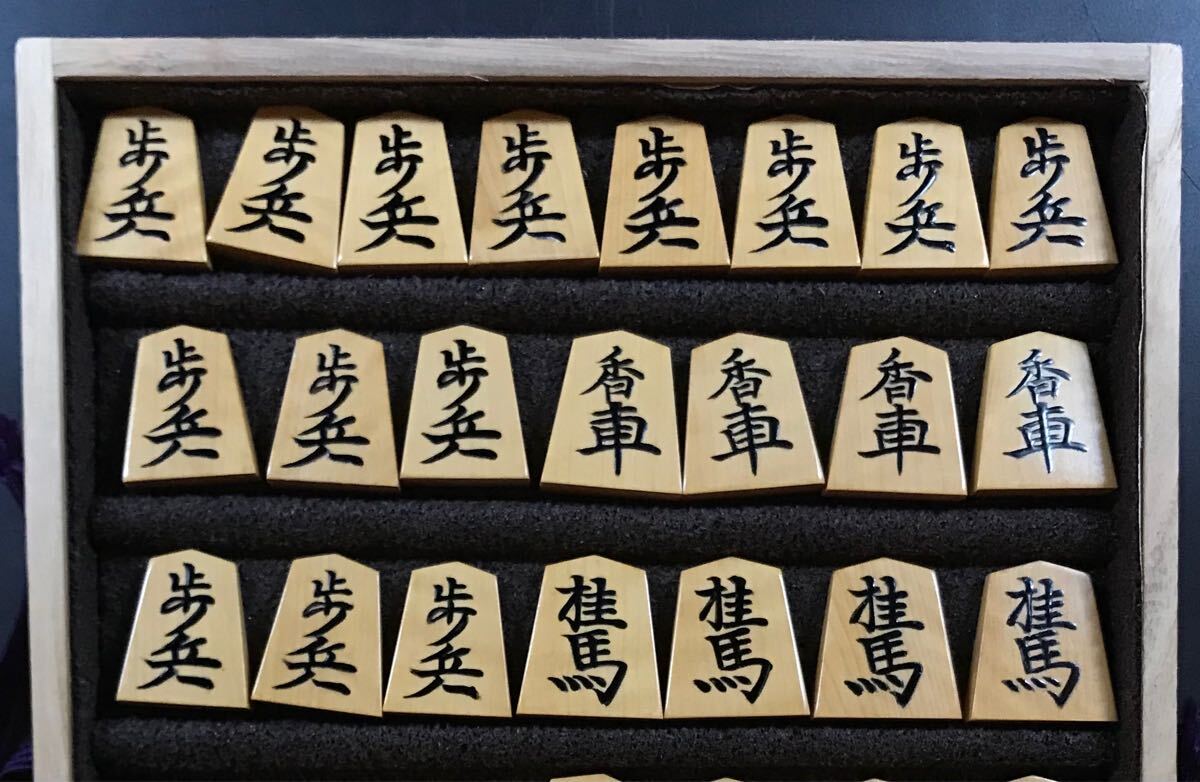 歩兵 歩兵 歩兵 歩兵 歩兵 歩兵 歩兵 歩兵
歩兵 歩兵 歩兵 香車 香車 香車 香車
歩兵 歩兵 歩兵 桂馬 桂馬 桂馬 桂馬